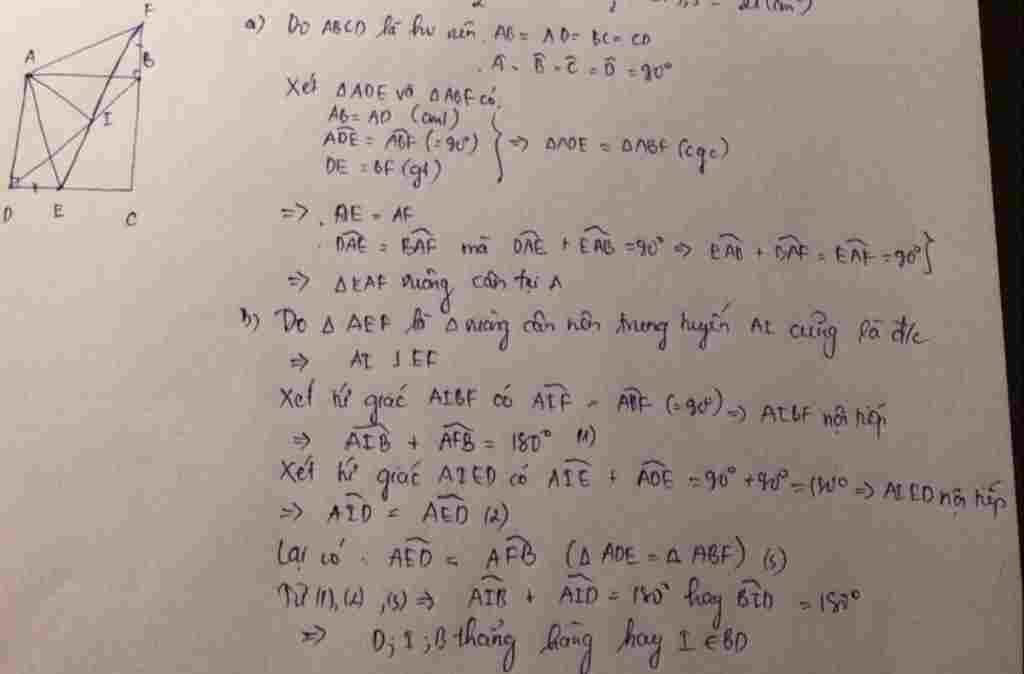 a) Do ABCD là hv nên. AB = AD = BC = CD
. Â = B̂ = Ĉ = D̂ = 90°
Xét ΔADE và ΔABF có
AB = AD (cmt)
ADE = ABF (= 90°)
DE = BF (gt)
=> ΔADE = ΔABF (cgc)
=> . AE = AF
. DAE = BAF mà DAE + EAB = 90° => EAB + BAF = EAF = 90° }
=> ΔEAF vuông cân tại A
b) Do Δ AEF là Δ vuông cân nên trung tuyến AI cũng là đ/c
=> AI ⊥ EF
Xét tứ giác AIBF có AIF = ABF (= 90°) => AIBF nội tiếp
=> AIB + AFB = 180° (1)
Xét tứ giác AIED có AIE + ADE = 90° + 90° = 180° => AIED nội tiếp
=> AID = AED (2)
Lại có : AED = AFB (Δ ADE = Δ ABF) (3)
Từ (1), (2), (3) => AIB + AID = 180° hay BID = 180°
=> D; I; B thẳng hàng hay I ∈ BD
F
A
B
I
D
E
C